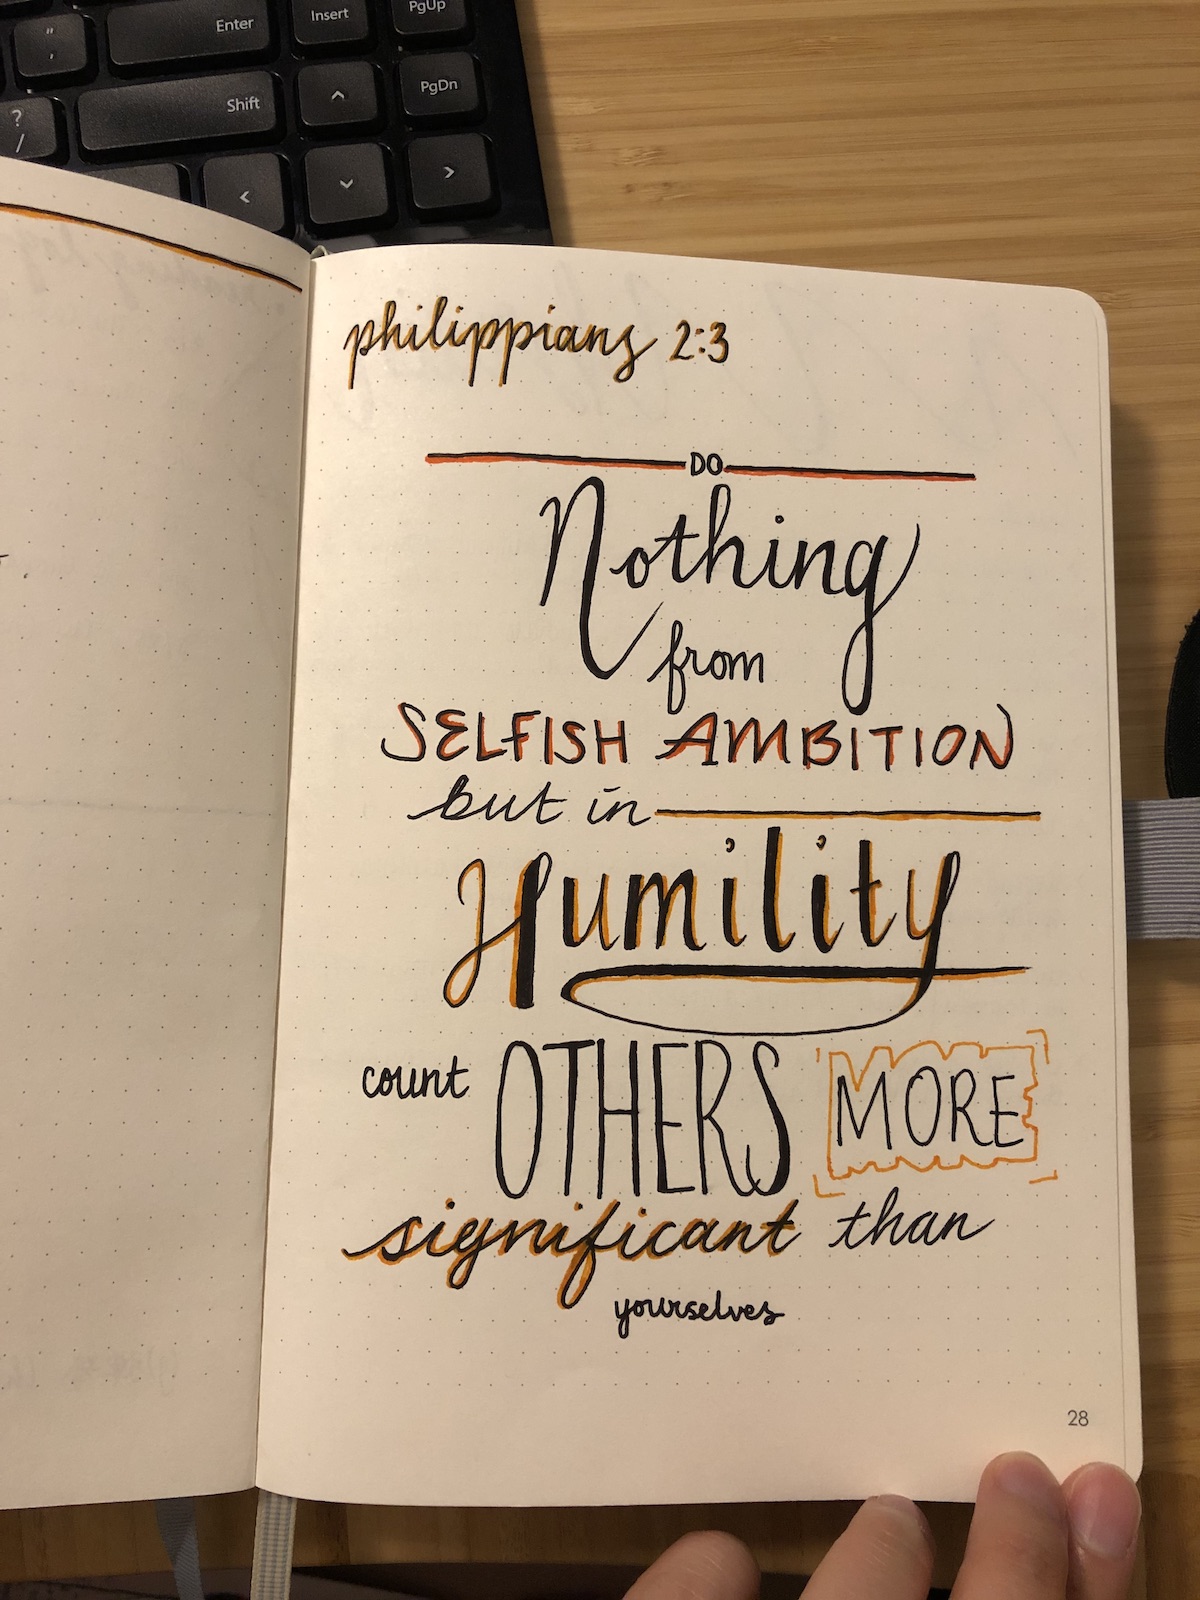 " Enter Insert PgUp
,
? Shift ^ PgDn
/
< ⌄ >
philippians 2:3
DO
Nothing
from
SELFISH AMBITION
but in
Humility
count OTHERS MORE
significant than
yourselves
28